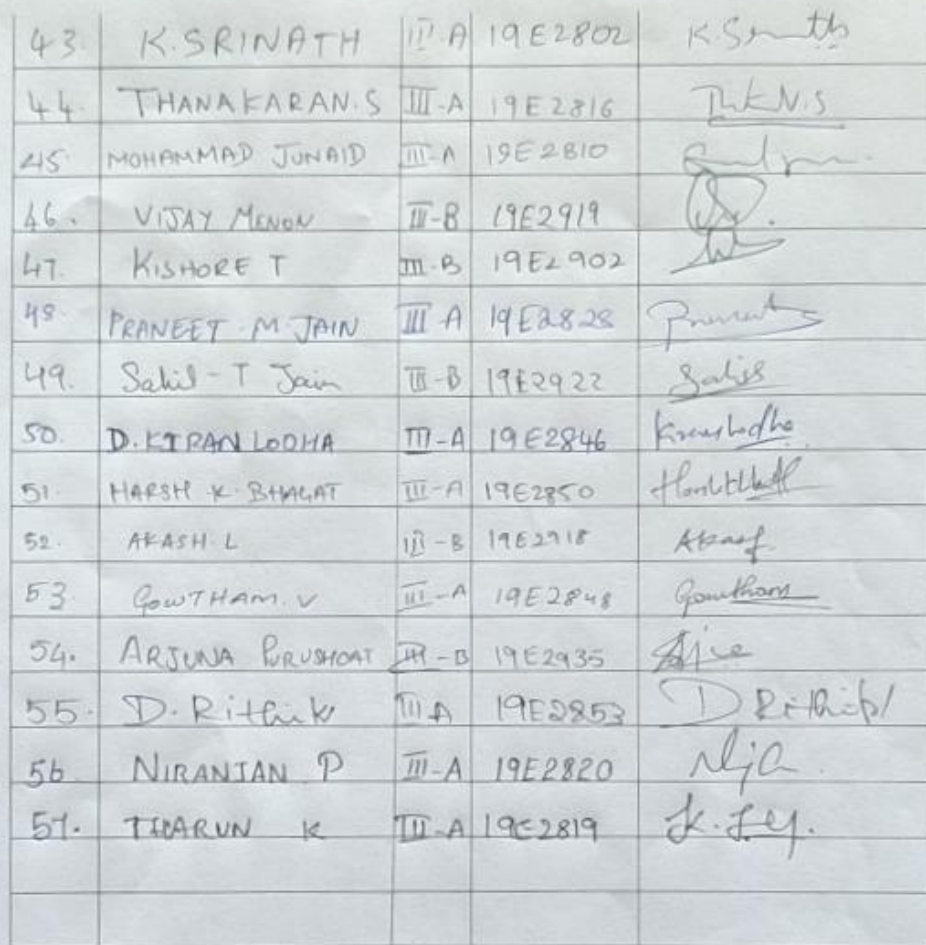 43. K. SRINATH III-A 19E2802 K.Srinath
44. THANAKARAN.S III-A 19E2816
45. MOHAMMAD JUNAID III-A 19E2810
46. VIJAY MENON III-B 19E2919
47. KISHORE T III-B 19E2902
48. PRANEET M JAIN III-A 19E2828
49. Sahil-T Jain III-B 19E2922
50. D.KIRAN LODHA III-A 19E2846 Kiranlodha
51. HARSH K. BHAGAT III-A 19E2850
52. AKASH.L III-B 19E2918 Akash
53. GOWTHAM.V III-A 19E2848 Gowtham
54. ARJUNA PURUSHOAT III-B 19E2935
55. D.Rithik III A 19E2853 D Rithik
56 NIRANJAN P III-A 19E2820
57. THARUN K III-A 19E2819